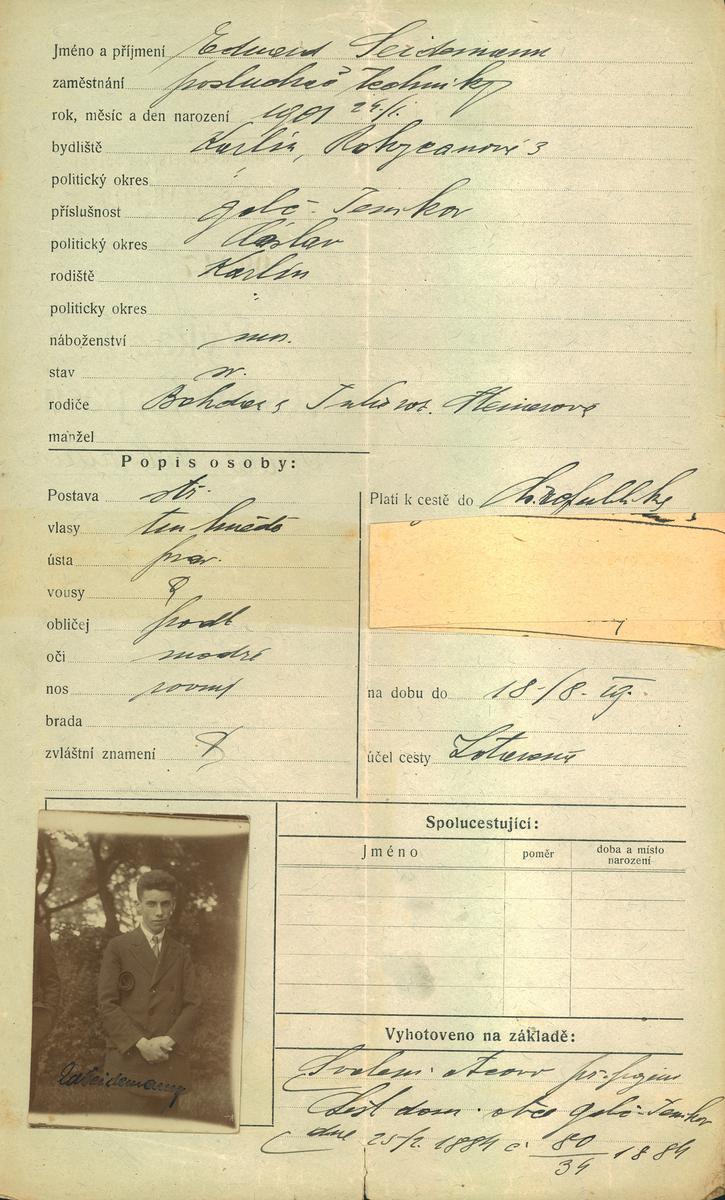 Jméno a příjmení Eduard Seidemann
zaměstnání posluchač techniky
rok, měsíc a den narození 1901 24/I.
bydliště Karlín, Rokycanova 3
politický okres
příslušnost golč-Jeníkov
politický okres Čáslav
rodiště Karlín
politicky okres "
náboženství mos.
stav sv.
rodiče
manžel
Popis osoby:
Postava stř.
vlasy tm hnědé
ústa prav.
vousy
obličej podl
oči modré
nos rovný
brada
zvláštní znamení
Platí k cestě do
na dobu do 18/8.
účel cesty
Spolucestující:
Jméno poměr doba a místo narození
Vyhotoveno na základě:
Svolení otcovo
List dom. obce golč-Jeníkov
dne 25/2. 1884 č 80/34 1884
EdSeidemann